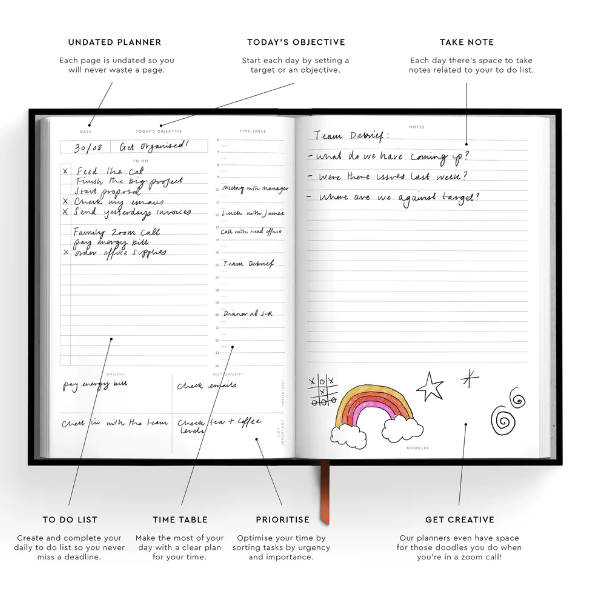 UNDATED PLANNER
Each page is undated so you
will never waste a page.
TODAY'S OBJECTIVE
Start each day by setting a
target or an objective.
TAKE NOTE
Each day there's space to take
notes related to your to do list.
DATE
TODAY'S OBJECTIVE
30/08
Get Organised!
TO DO
x Feed the cat
Finish the big project
Start proposal
x Check my emails
x Send yesterdays invoices
Family Zoom Call
pay energy bill
x order office supplies
TIME TABLE
Meeting with manager
Lunch with James
Call with head office
Team Debrief
Dinner at
URGENT
NOT URGENT
pay energy bill
Check emails
IMPORTANT
Check in with the team
Check tea + coffee
levels
NOT
IMPORTANT
NOTES
Team Debrief:
- what do we have coming up?
- were there issues last week?
- where are we against target?
DOODLES
TO DO LIST
Create and complete your
daily to do list so you never
miss a deadline.
TIME TABLE
Make the most of your
day with a clear plan
for your time.
PRIORITISE
Optimise your time by
sorting tasks by urgency
and importance.
GET CREATIVE
Our planners even have space
for those doodles you do when
you're in a zoom call!